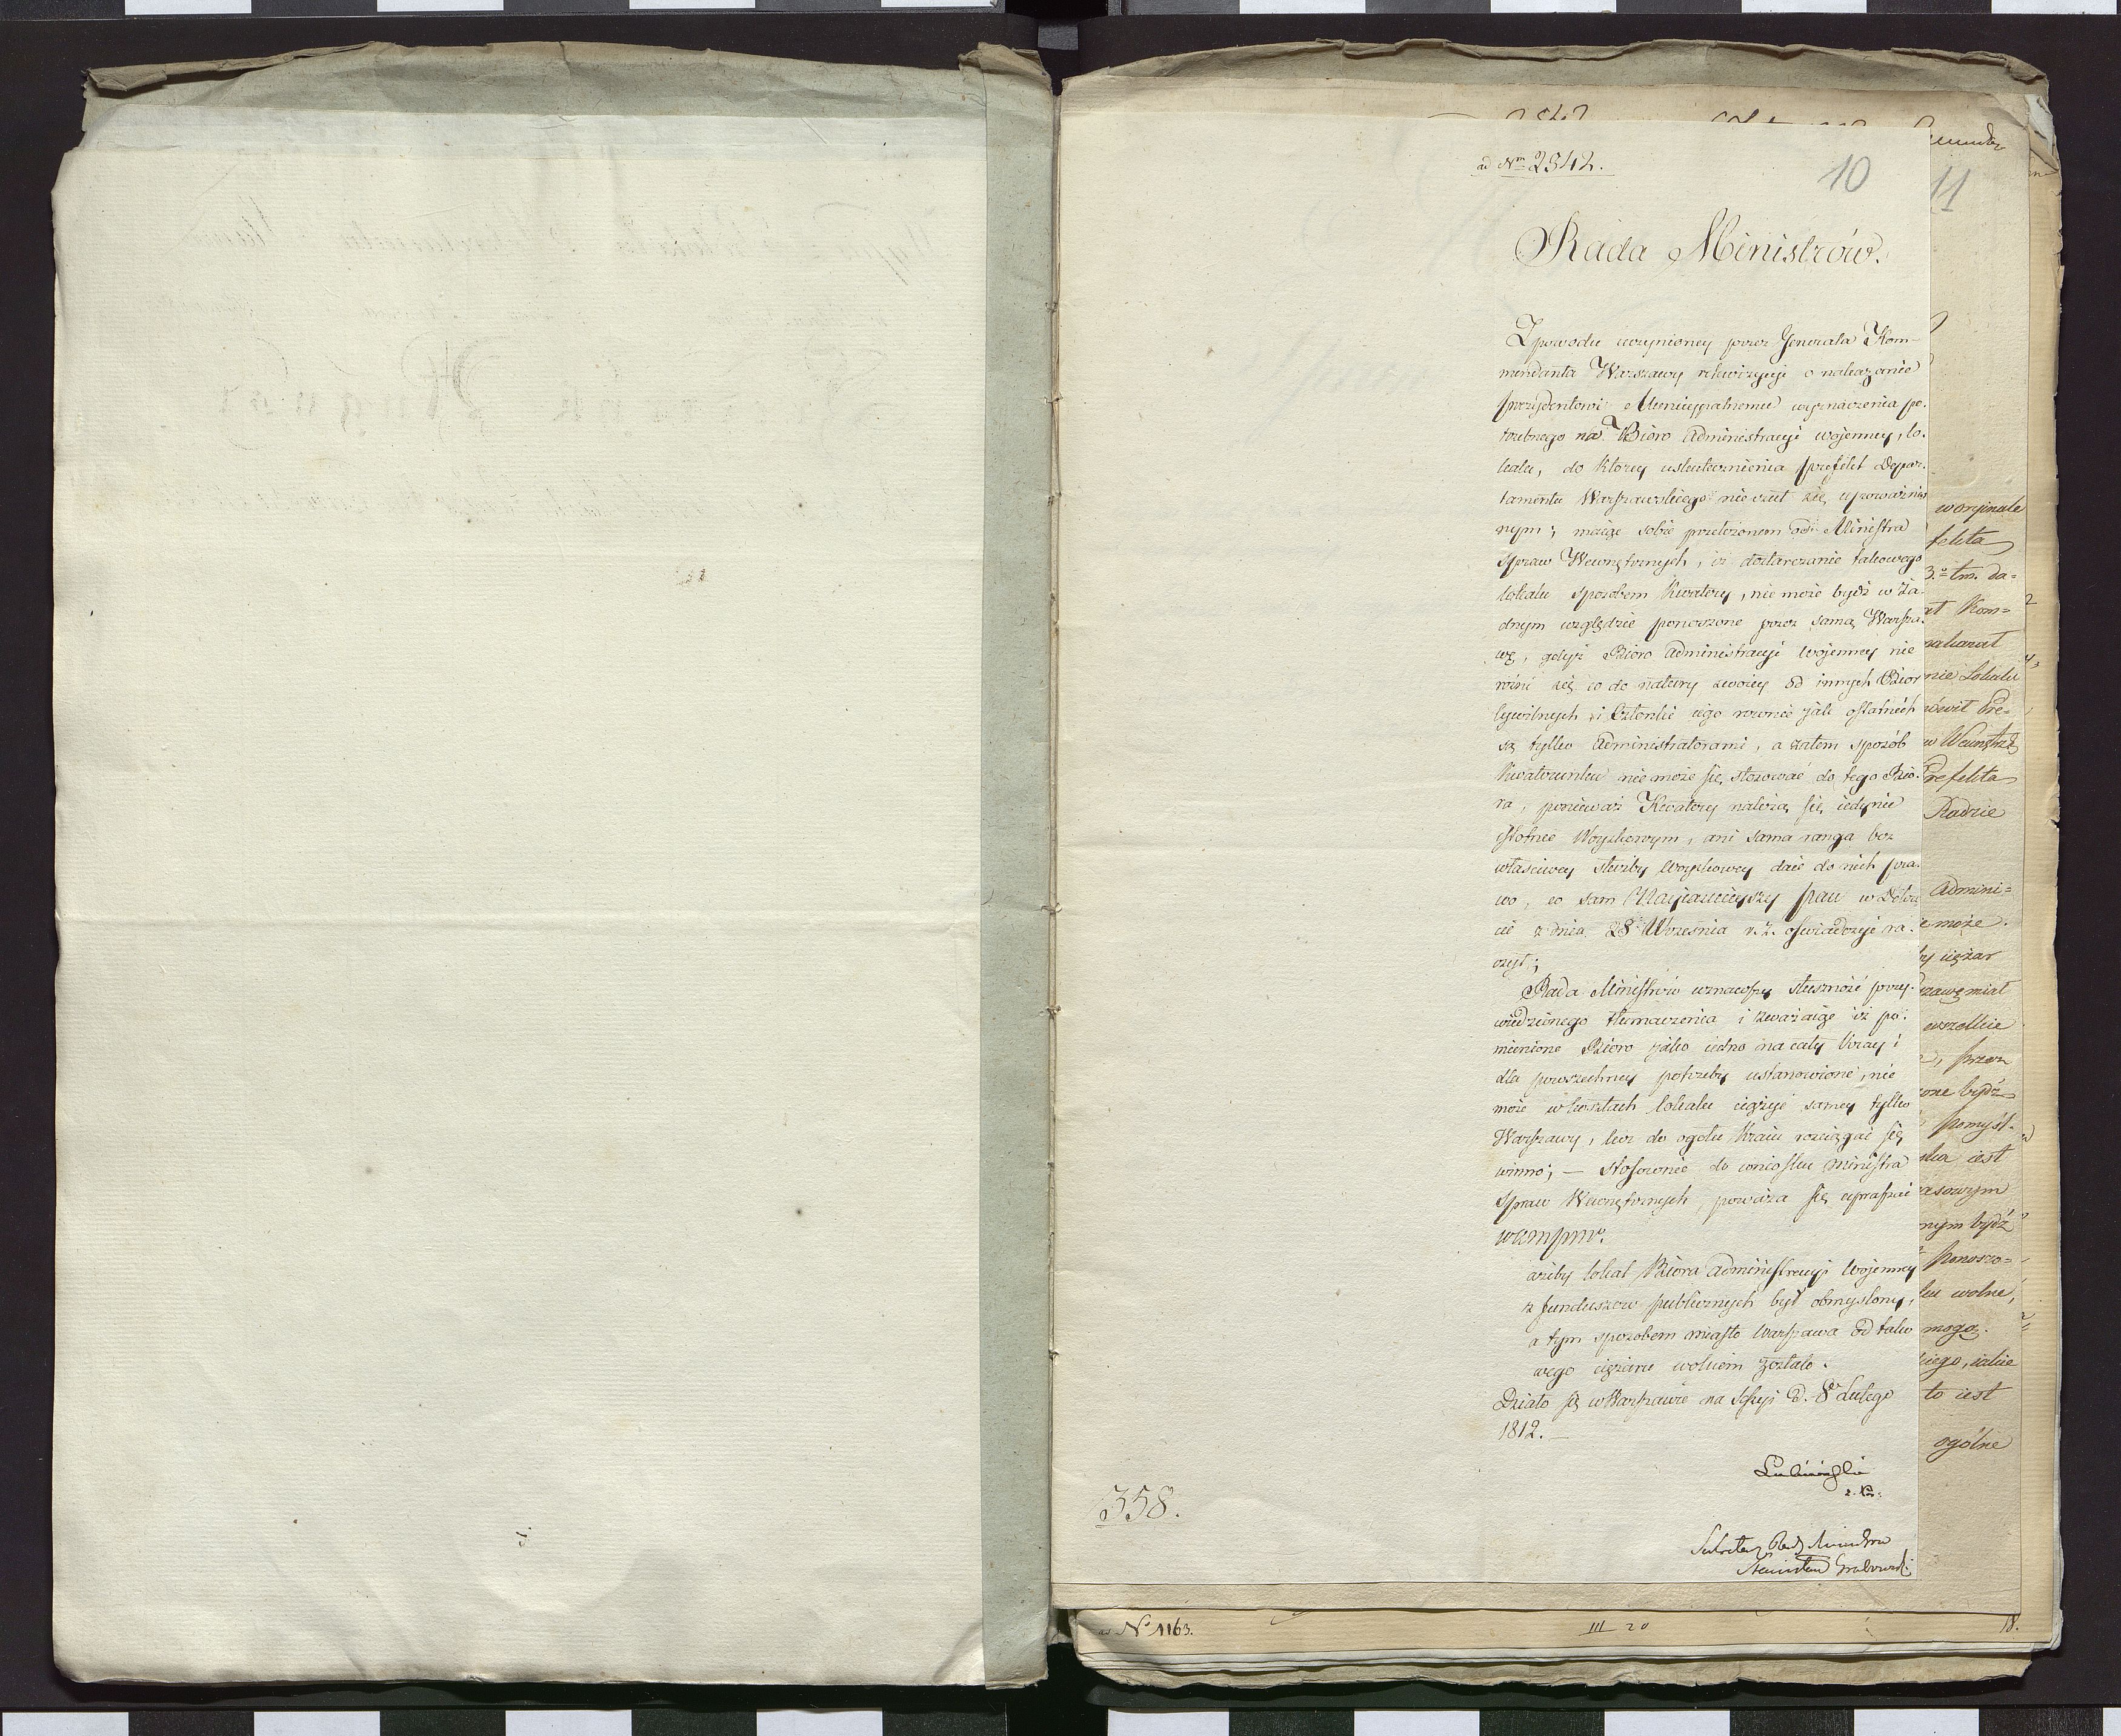 ad Nrm 2342.
10
Rada Ministrów.
Z powodu uczynioney przez Generała Kom-
mendanta Warszawy rekwizycyi o nakazanie
prezydentowi Municypalnemu wyznaczenia po-
trzebnego na Bióro Administracyi wojenney, lo-
kalu, do którey uskutecznienia prefekt Depar-
tamentu Warszawskiego nie czuł się upoważnio
nym; maiąc sobie przełożonem od Ministra
Spraw Wewnętrznych, iż dostarczanie takowego
lokalu sposobem kwatery, nie może bydź w ża-
dnym względzie ponoszone przez samą Warsza-
wę, gdyż Bióro Administracyi wojenney nie
różni się co do natury swoiey od innych Biór
Cywilnych i Członki iego rownie jak ostatnich
są tylko Administratorami, a zatem sposób
kwaterunku nie może się stosować do tego Bió-
ra, ponieważ Kwatery należą się iedynie
istotnie Woyskowym, ani sama ranga bez
właściwey służby Woyskowey daie do nich pra-
wo, co sam Nayiaśnieyszy Pan w Dekre
cie z dnia 28 Września r. z. oświadczyć ra-
czył;
Rada Ministrów uznawszy słuszność przy-
wiedzionego tłumaczenia i zważaiąc iż po-
mienione Bióro jako iedno na cały kray i
dla powszechney potrzeby ustanowione, nie
może w kosztach lokalu ciążyć samey tylko
Warszawy, lecz do ogółu kraiu rozciągać się
winno; — stosownie do wniosku Ministra
Spraw Wewnętrznych, poważa się upraszać
WKMPNM.
ażeby lokal Bióra Administracyi Wojenney
z funduszów publicznych był obmyślony,
a tym sposobem miasto Warszawa od tako
wego ciężaru wolnem zostało.
Działo się w Warszawie na Sessyi d. 8 Lutego
1812. —
Łubieński
Sekretarz Rady Ministrów
Stanisław Grabowski
358.
11
w orjinale
fekta
3.o tm. da-
ał Kom=
nakazał
nie Lokalu
ówił Pre-
w Wewnętrz
Prefekta
Radzie
Admini=
e może.
y ciężar
zawę miał
wszelkie
przez
one bydź
pomyśl-
ska iest
asowym
nym bydź
ponoszo=
wolne,
mogą.
iego, iakie
to iest
ogólne
ad No 1163.
III 20
18.